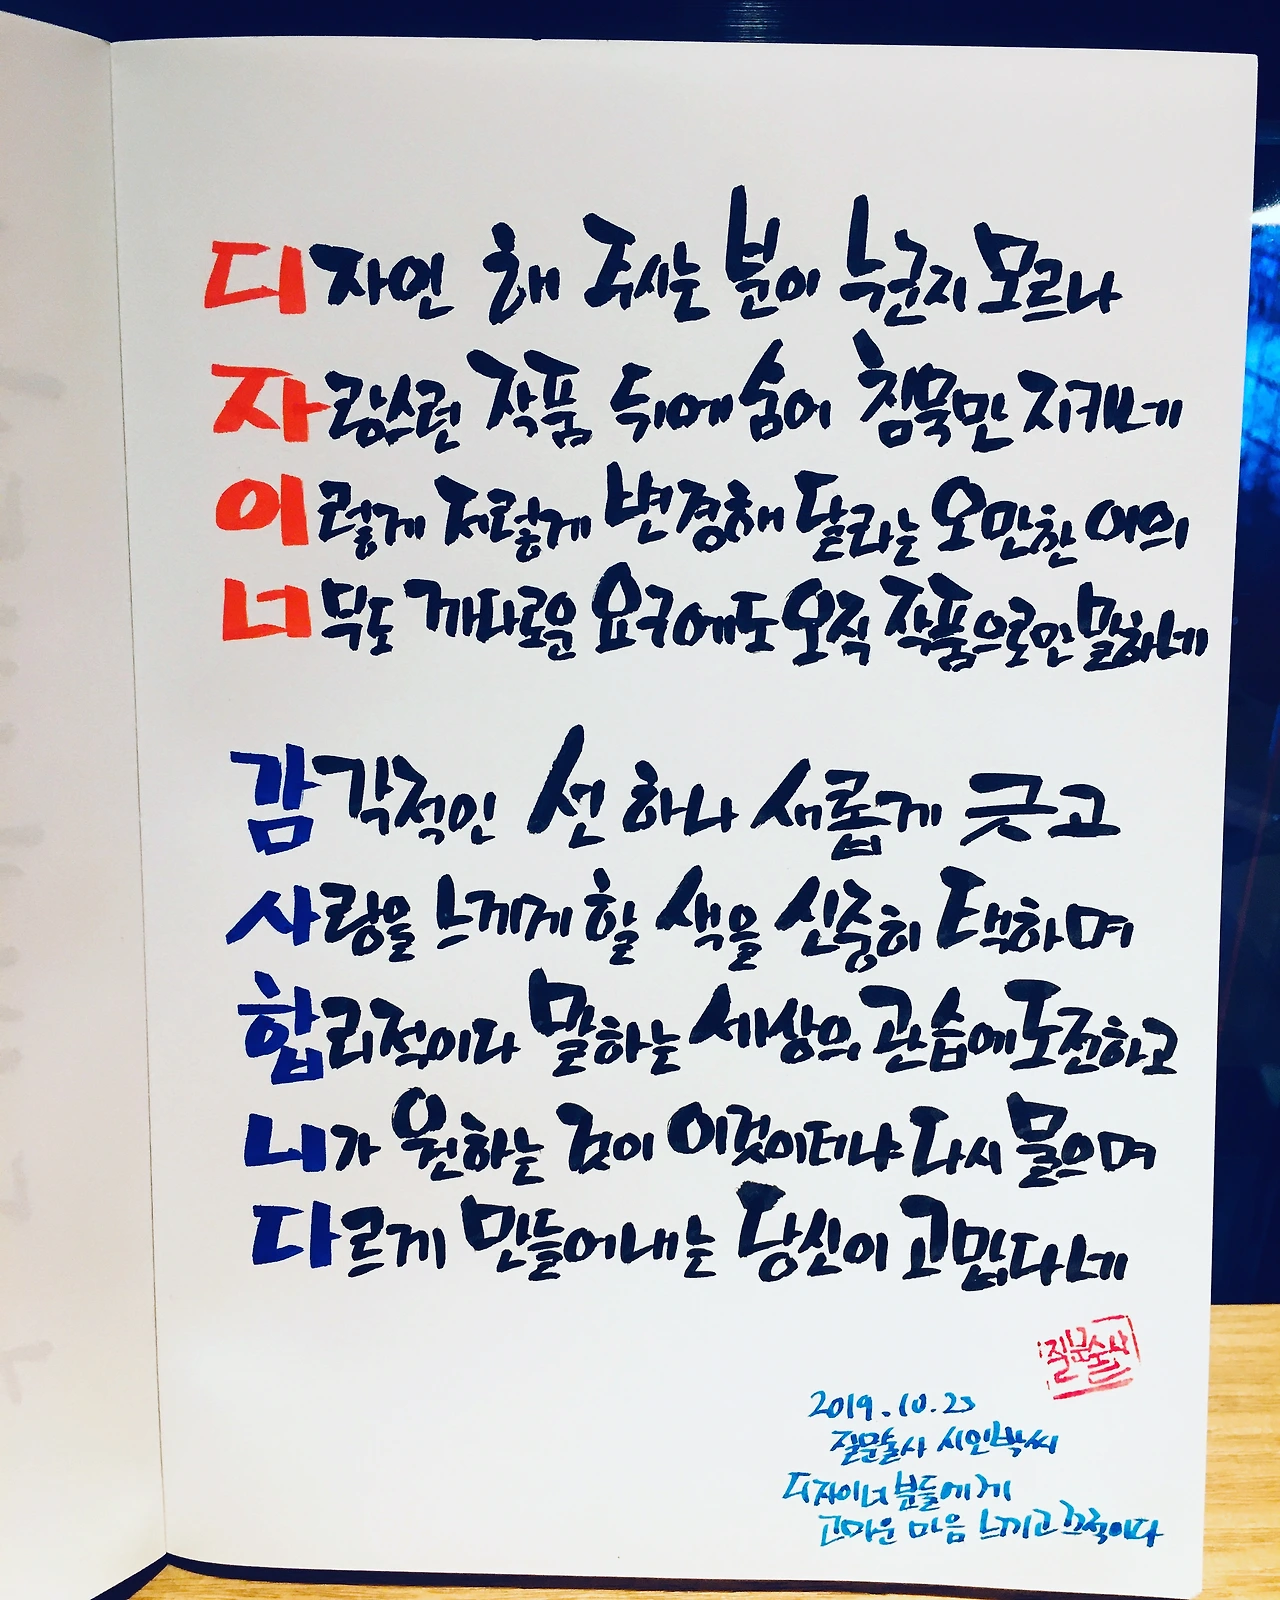 디자인 해 주시는 분이 누군지 모르나
자랑스런 작품 뒤에 숨어 침묵만 지키네
이렇게 저렇게 변경해 달라는 오만한 이의
너무도 까다로운 요구에도 오직 작품으로만 말하네
감각적인 선 하나 새롭게 긋고
사랑을 느끼게 할 색을 신중히 택하며
합리적이다 말하는 세상의 관습에 도전하고
니가 원하는 것이 이것이더냐 다시 물으며
다르게 만들어내는 당신이 고맙다네
질문술사
2019.10.23
질문술사 시인박씨
디자이너 분들에게
고마운 마음 느끼고 끄적이다